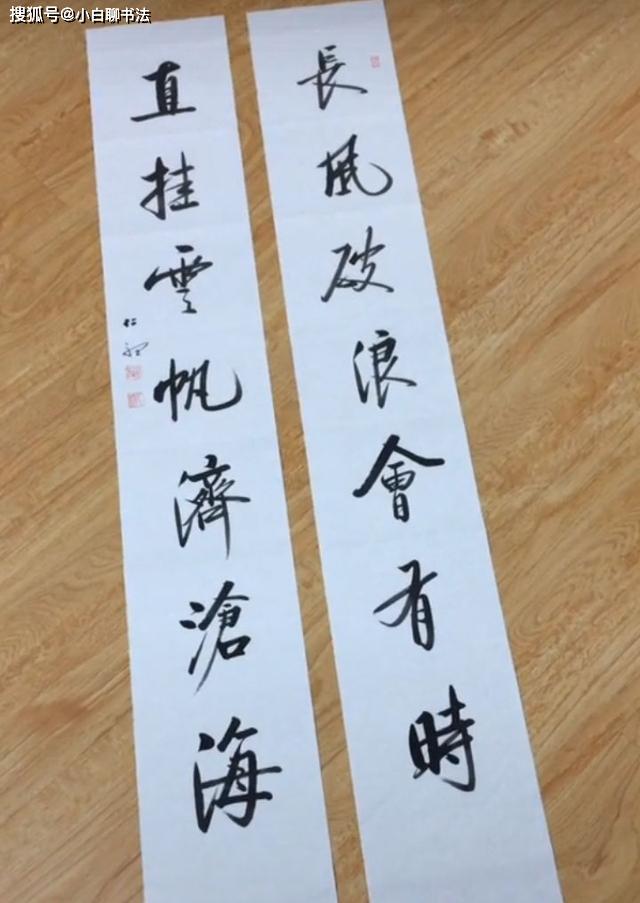 搜狐号@小白聊书法
長風破浪會有時
直挂雲帆濟滄海